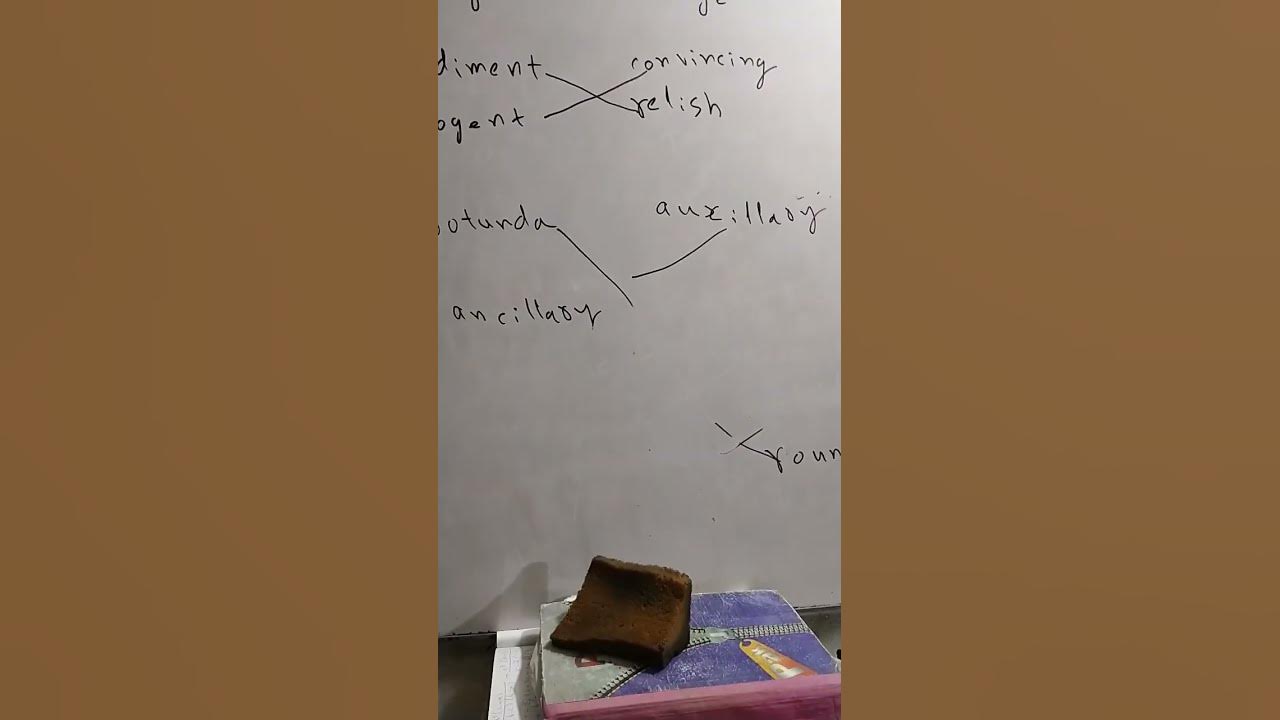 diment convincing
ogent relish
otunda auxillary
ancillary
roun